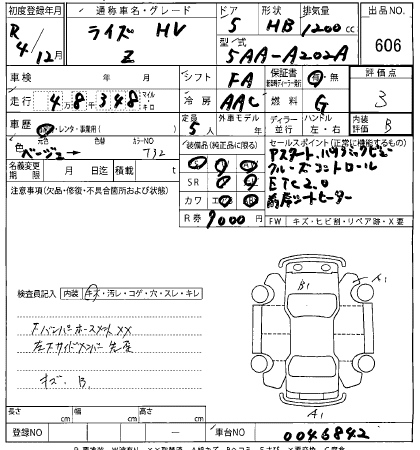 初度登録年月 通称車名・グレード ドア 形状 排気量 出品NO.
R 4/12月 ライズ HV Z 5 HB 1200 cc 606
型式 5AA-A202A
車検 シフト FA 保証書 有・無 評価点
走行 4万8千348 マイル キロ 冷房 AAC 燃料 G 3
車歴 ・レンタ・事業用( ) 定員 5人 外車モデル 年 ディーラー 並行 ハンドル 左・右 内装評価 B
色 元色 ベージュ 色替 カラーNO 732 装備品(純正品に限る) セールスポイント(正常に機能するもの)
Pスタート、パノラミックビュー
名義変更期限 月 日迄 積載 t SR クルーズコントロール
注意事項(欠品・修復・不具合箇所および状態) カワ エア ETC2.0
前席シートヒーター
R券 9000円 FW キズ・ヒビ割・リペア跡・X要
検査員記入 内装 キズ・汚レ・コゲ・穴・スレ・キレ
B1 A1
Fバンパーホースメント××
左Fサイドメンバー先歪
キズ. B.
A1
長さ cm 幅 cm 高さ cm
登録NO 車台NO 0046842